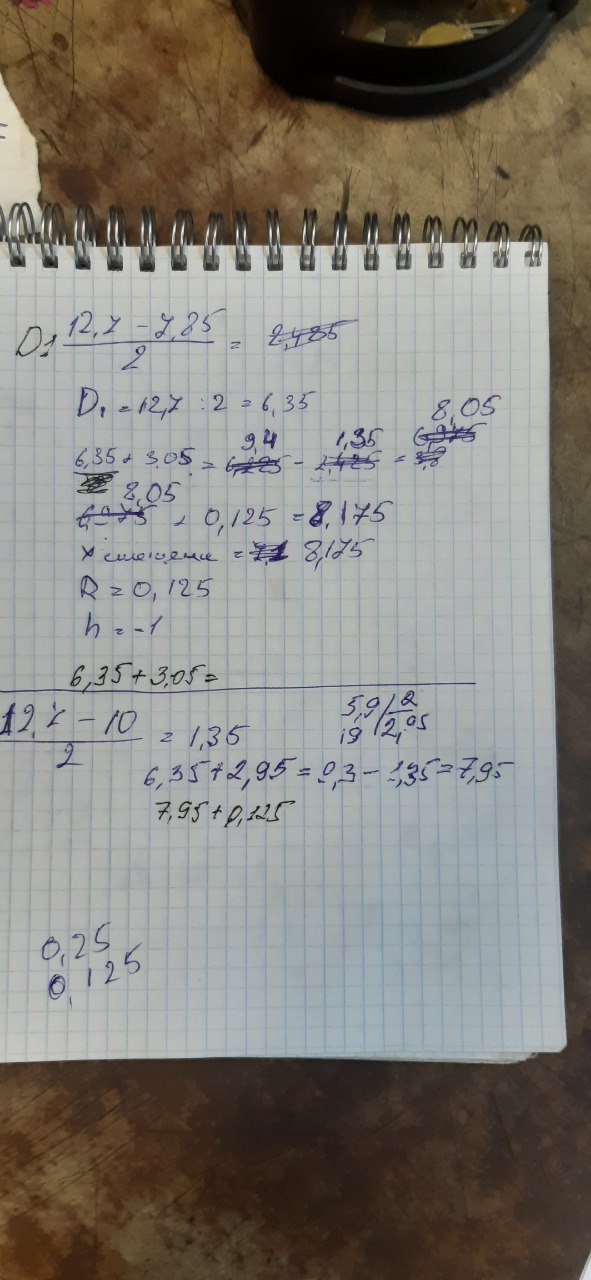 D1 (12,7 - 7,85)/2 = 2,485
D₁ = 12,7 : 2 = 6,35
8,05
9,4 1,35
6,35 + 3,05 = 6,225 - 2,425 =
8,05
+ 0,125 = 8,175
X смещения = 8,175
R = 0,125
h = -1
6,35 + 3,05 =
(12,7 - 10)/2 = 1,35
5,9 | 2
19 | 2,95
6,35 + 2,95 = 9,3 - 1,35 = 7,95
7,95 + 0,125
0,25
0,125